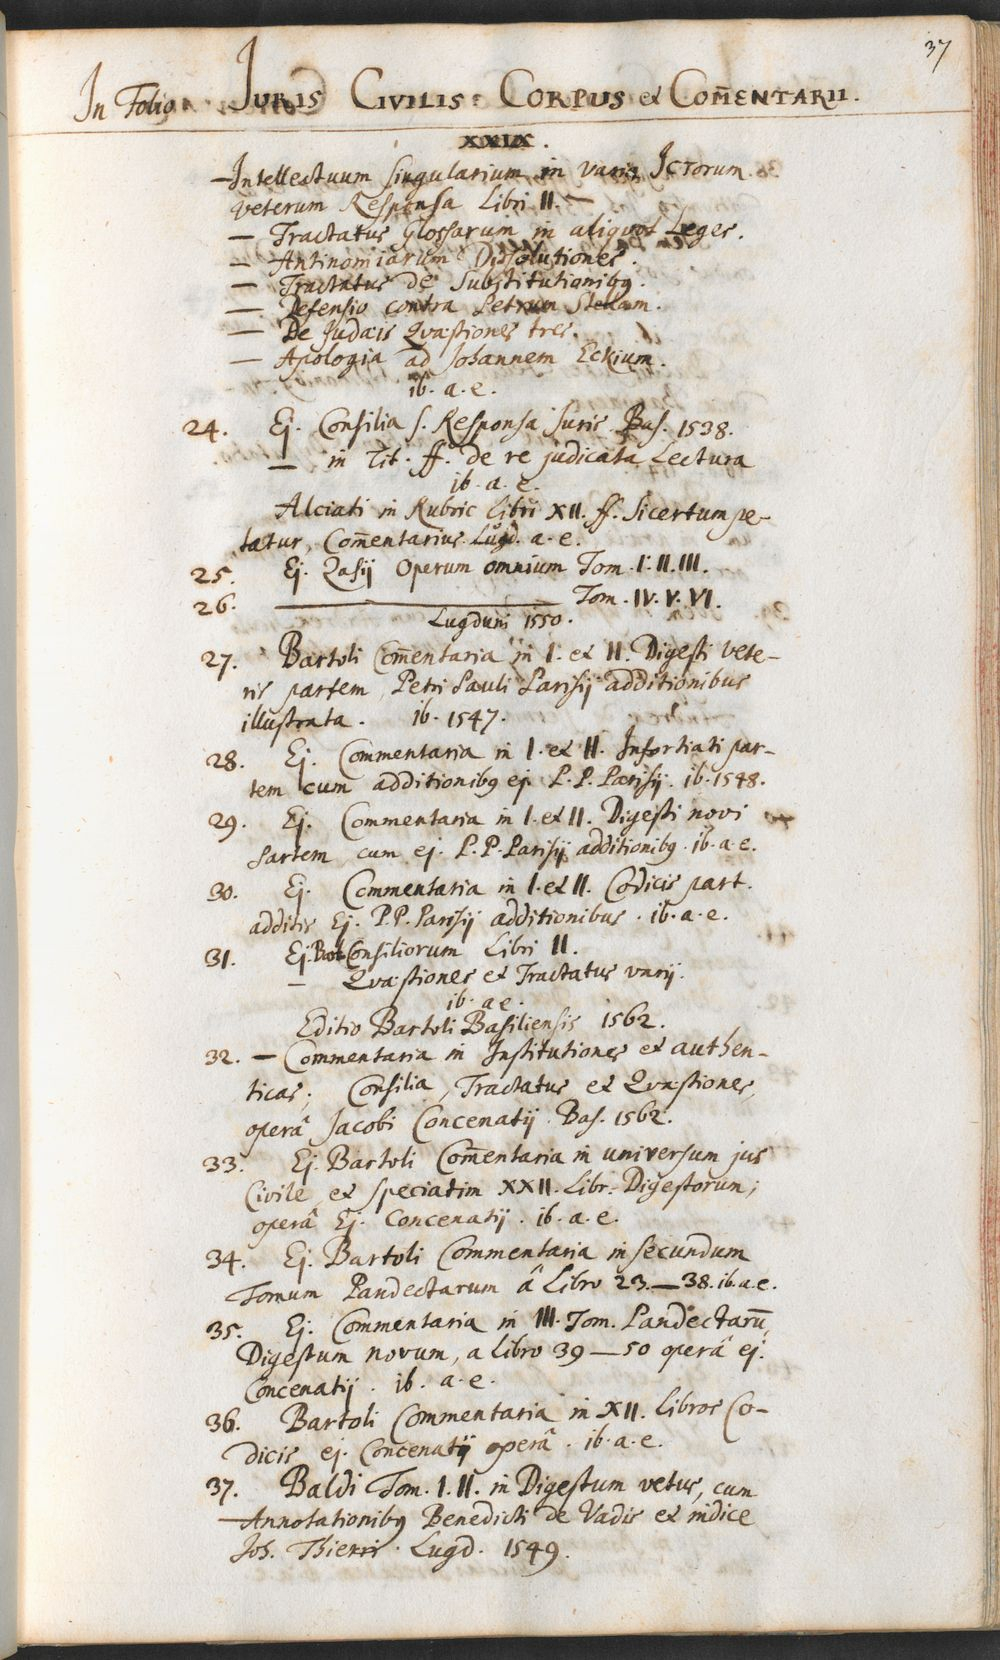 37
In Folio Juris Civilis Corpus et Com̃entarii.
XXIX.
—Intellectuum singularium in varia JCTorum
veterum Responsa Libri II.—
— Tractatus Glossarum in aliquot Leges.
— Antinomiarum Dissolutiones.
— Tractatus de Substitutionibg.
— Defensio contra Petrum Stellam.
— De Judæis Qvæstiones tres.
— Apologia ad Johannem Eckium.
ib. a. e.
24. Ej. Consilia s. Responsa Juris. Bas. 1538.
— in Tit. ff. de re judicata Lectura
ib. a. e.
Alciati in Rubric Libri XII. ff. Sicertum pe-
tatur, Com̃entarius. Lugd. a. e.
25. Ej. Zasij Operum omnium Tom. I. II. III.
26. ——— Tom. IV. V. VI.
Lugduni 1550.
27. Bartoli Com̃entaria in I. et II. Digesti vete-
ris partem, Petri Pauli Parisij additionibus
illustrata. ib. 1547.
28. Ej. Commentaria in I. et II. Infortiati par-
tem cum additionibg ej. P. P. Parisij. ib. 1548.
29. Ej. Commentaria in I. et II. Digesti novi
Partem cum ej. P. P. Parisij additionibg. ib. a. e.
30. Ej. Commentaria in I. et II. Codicis part.
additis Ej. P. P. Parisij additionibus. ib. a. e.
31. Ej. Bart. Consiliorum Libri II.
— Qvæstiones et Tractatus varij.
ib. a e.
Editio Bartoli Basiliensis 1562.
32. — Commentaria in Institutiones et authen-
ticas; Consilia, Tractatus et Qvæstiones,
operâ Jacobi Concenatij. Bas. 1562.
33. Ej. Bartoli Com̃entaria in universum jus
Civile, et speciatim XXII. Libr. Digestorum;
operâ Ej. Concenatij. ib. a. e.
34. Ej. Bartoli Commentaria in secundum
Tomum Pandectarum â Libro 23.—38. ib. a. e.
35. Ej. Commentaria in III. Tom. Pandectarū,
Digestum novum, a libro 39—50 operâ ej.
Concenatij. ib. a. e.
36. Bartoli Commentaria in XII. Libros Co-
dicis ej. Concenatij operâ. ib. a. e.
37. Baldi Tom. I. II. in Digestum vetus, cum
Annotationibg Benedicti de Vadis et indice
Joh. Thierri. Lugd. 1549.